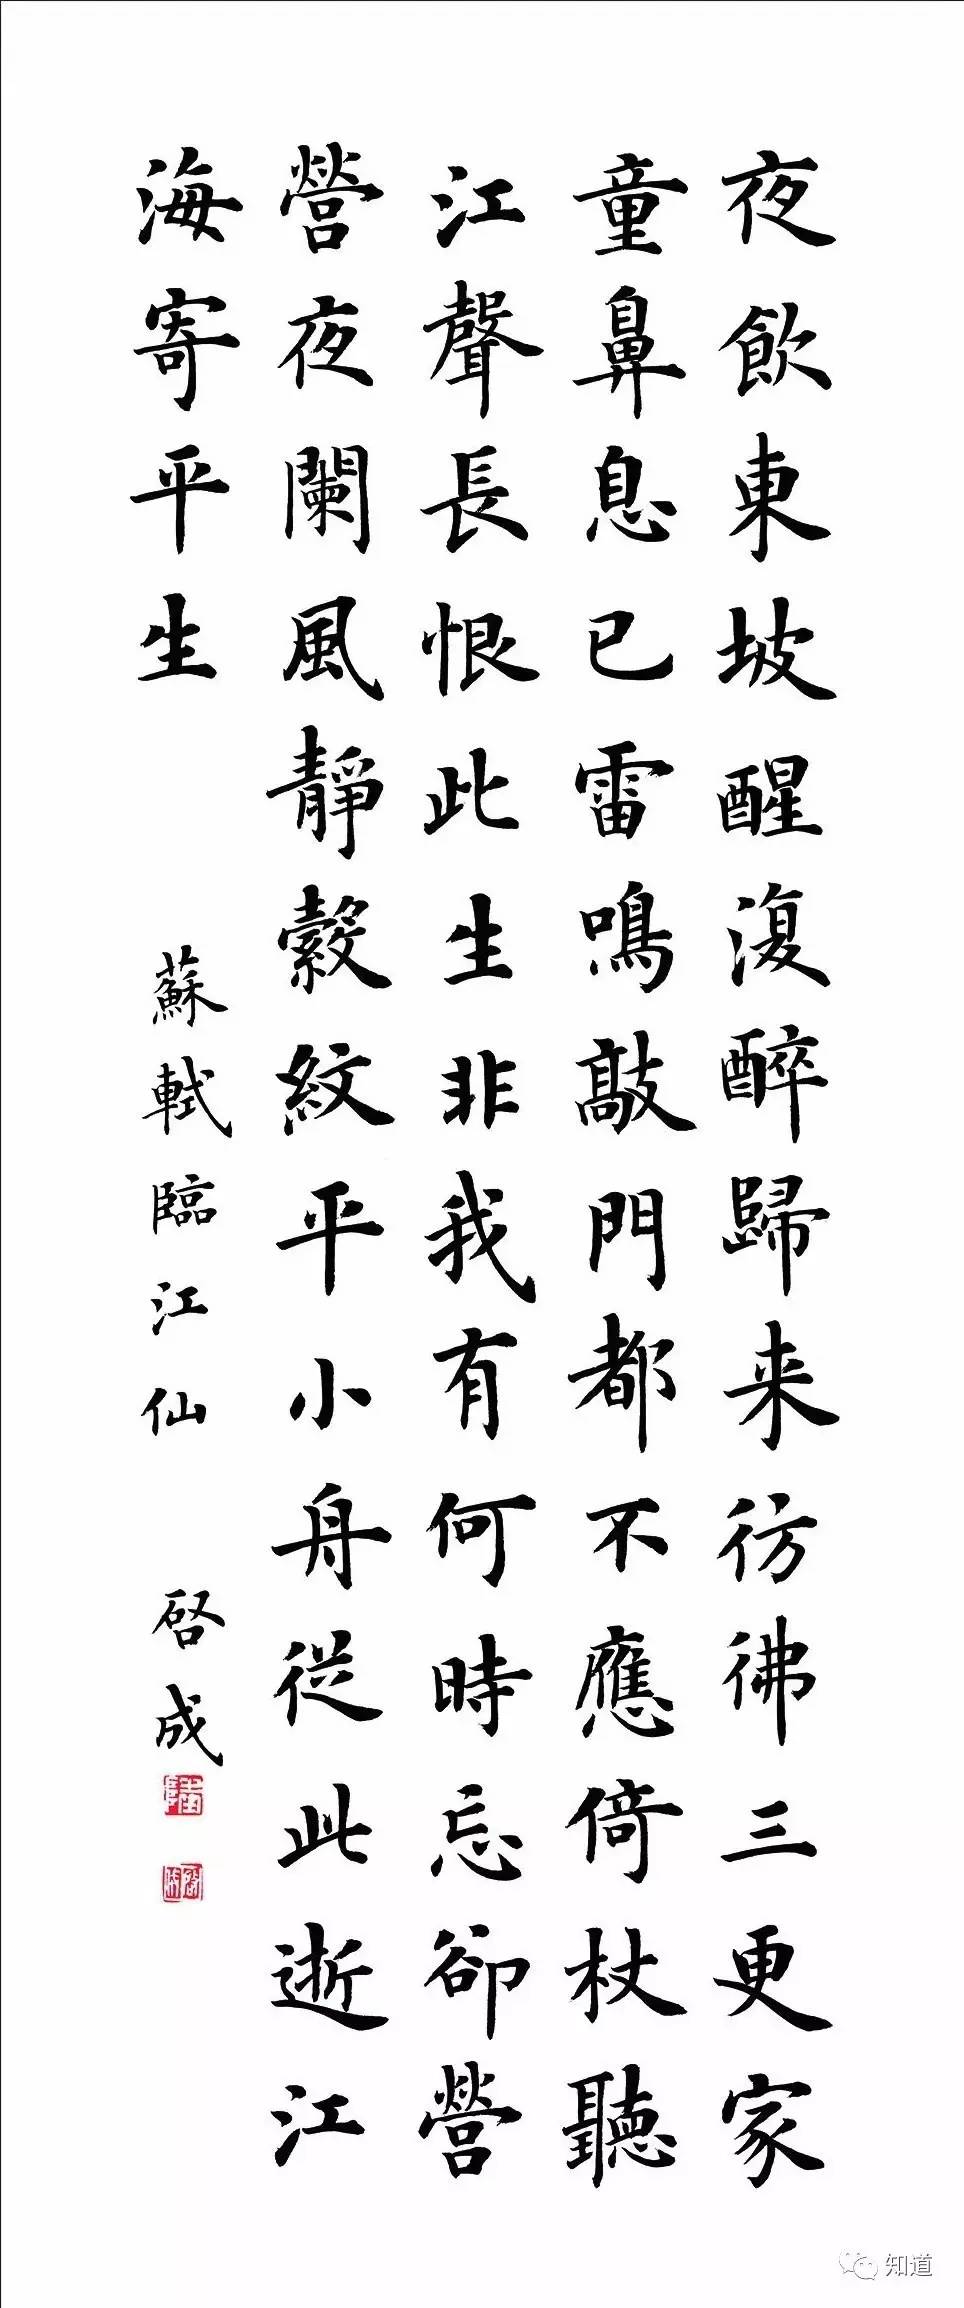 夜飲東坡醒復醉歸来彷彿三更家
童鼻息已雷鳴敲門都不應倚杖聽
江聲長恨此生非我有何時忘卻營
營夜闌風靜縠紋平小舟從此逝江
海寄平生
蘇軾臨江仙
啓成
知道